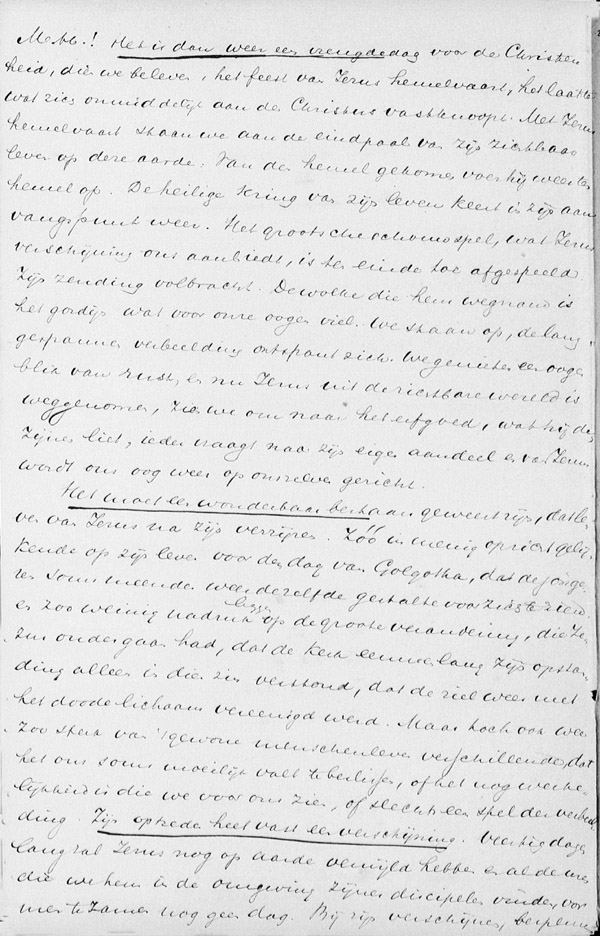 M. br.! Het is dan weer een vreugdedag voor de Christen
heid, die we beleven, het feest van Jezus hemelvaart, het laatste
wat zich onmiddelijk aan den Christus vastknoopt. Met Jezus
hemelvaart staan we aan de eindpaal van zijn zichtbaar
leven op deze aarde. Van den hemel gekomen voer hij weer ten
hemel op. De heilige kring van zijn leven keert in zijn aan
vangspunt weer. Het grootsche schouwspel, wat Jezus
verschijning ons aanbiedt, is ten einde toe afgespeeld
Zijn zending volbracht. De wolke die hem wegnam is
het gordijn wat voor onze oogen viel. We staan op, de lang
gespannen verbeelding ontspant zich. We genieten een oogen
blik van rust, en nu Jezus uit de zichtbare wereld is
weggenomen, zien we om naar het erfgoed, wat hij den
Zijnen liet, ieder vraagt naar zijn eigen aandeel en van Jezus
wordt ons oog weer op onszelven gericht.
Het moet een wonderbaar bestaan geweest zijn, dat le
ven van Jezus na zijn verrijzen. Zóó in menig opzicht gelij
kende op zijn leven voor den dag van Golgotha, dat de jonge
ren soms meenden weer dezelfde gestalte voor zich te zien
en zoo weinig nadruk leggen op de groote verandering, die Je
zus ondergaan had, dat de Kerk eeuwen lang zijn opstan
ding alleen in dien zin verstond, dat de ziel weer met
het doode lichaam vereenigd werd. Maar toch ook weer
zoo sterk van 't gewone menschenleven verschillende, dat
het ons soms moeilijk valt te beslissen, of het nog werke
lijkheid is die we voor ons zien, of slechts een spel der verbeel
ding. Zijn optreden heet vast een verschijning. Veertig dagen
lang zal Jezus nog op aarde verwijld hebben en al de uren
die we hem in de omgeving zijner discipelen vinden, vor
men te zamen nog geen dag. Bij zijn verschijnen,